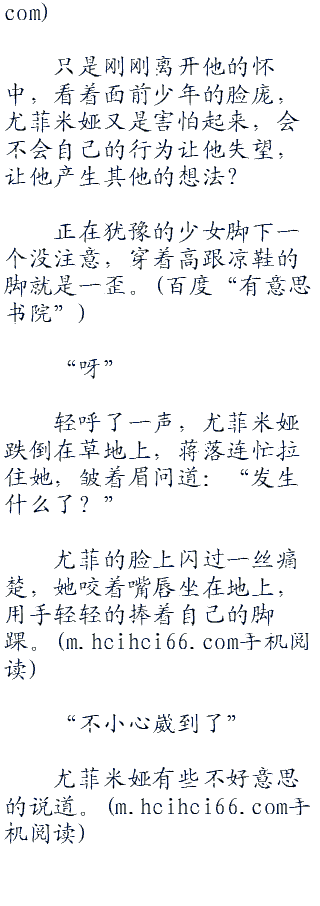 com)
只是刚刚离开他的怀
中，看着面前少年的脸庞，
尤菲米娅又是害怕起来，会
不会自己的行为让他失望，
让他产生其他的想法？
正在犹豫的少女脚下一
个没注意，穿着高跟凉鞋的
脚就是一歪。(百度“有意思
书院”)
“呀”
轻呼了一声，尤菲米娅
跌倒在草地上，蒋落连忙拉
住她，皱着眉问道：“发生
什么了？”
尤菲的脸上闪过一丝痛
楚，她咬着嘴唇坐在地上，
用手轻轻的捧着自己的脚
踝。(m.hcihci66.com手机阅
读)
“不小心崴到了”
尤菲米娅有些不好意思
的说道。(m.hcihci66.com手
机阅读)